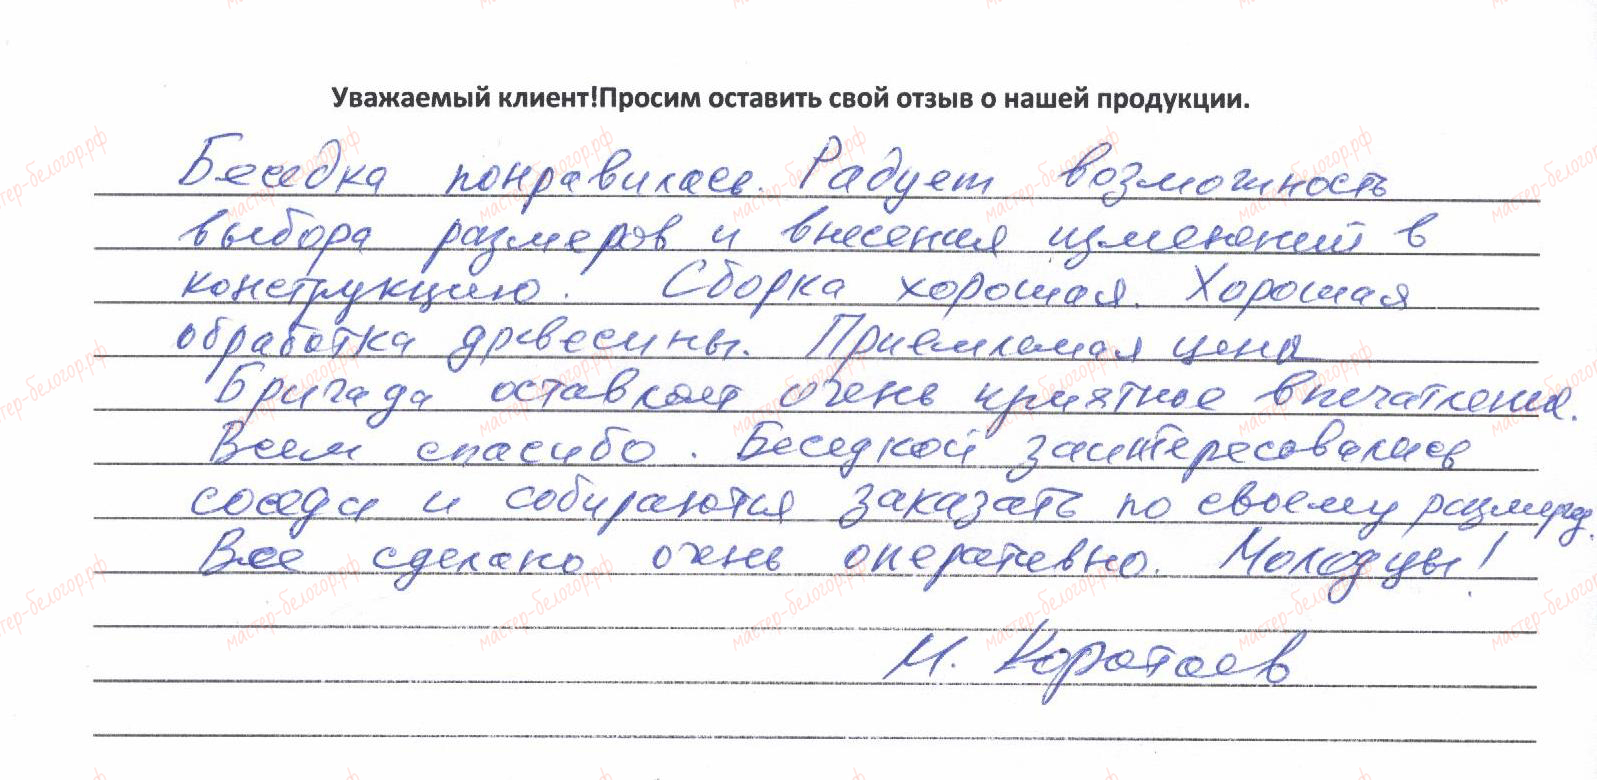 Уважаемый клиент!Просим оставить свой отзыв о нашей продукции.
Беседка понравилась. Радует возможность
выбора размеров и внесения изменений в
конструкцию. Сборка хорошая. Хорошая
обработка древесины. Приемлемая цена
Бригада оставляет очень приятное впечатление.
Всем спасибо. Беседкой заинтересовались
соседи и собираются заказать по своему размеру.
Все сделано очень оперативно. Молодцы!
М. Коротаев
мастер-белогор.рф